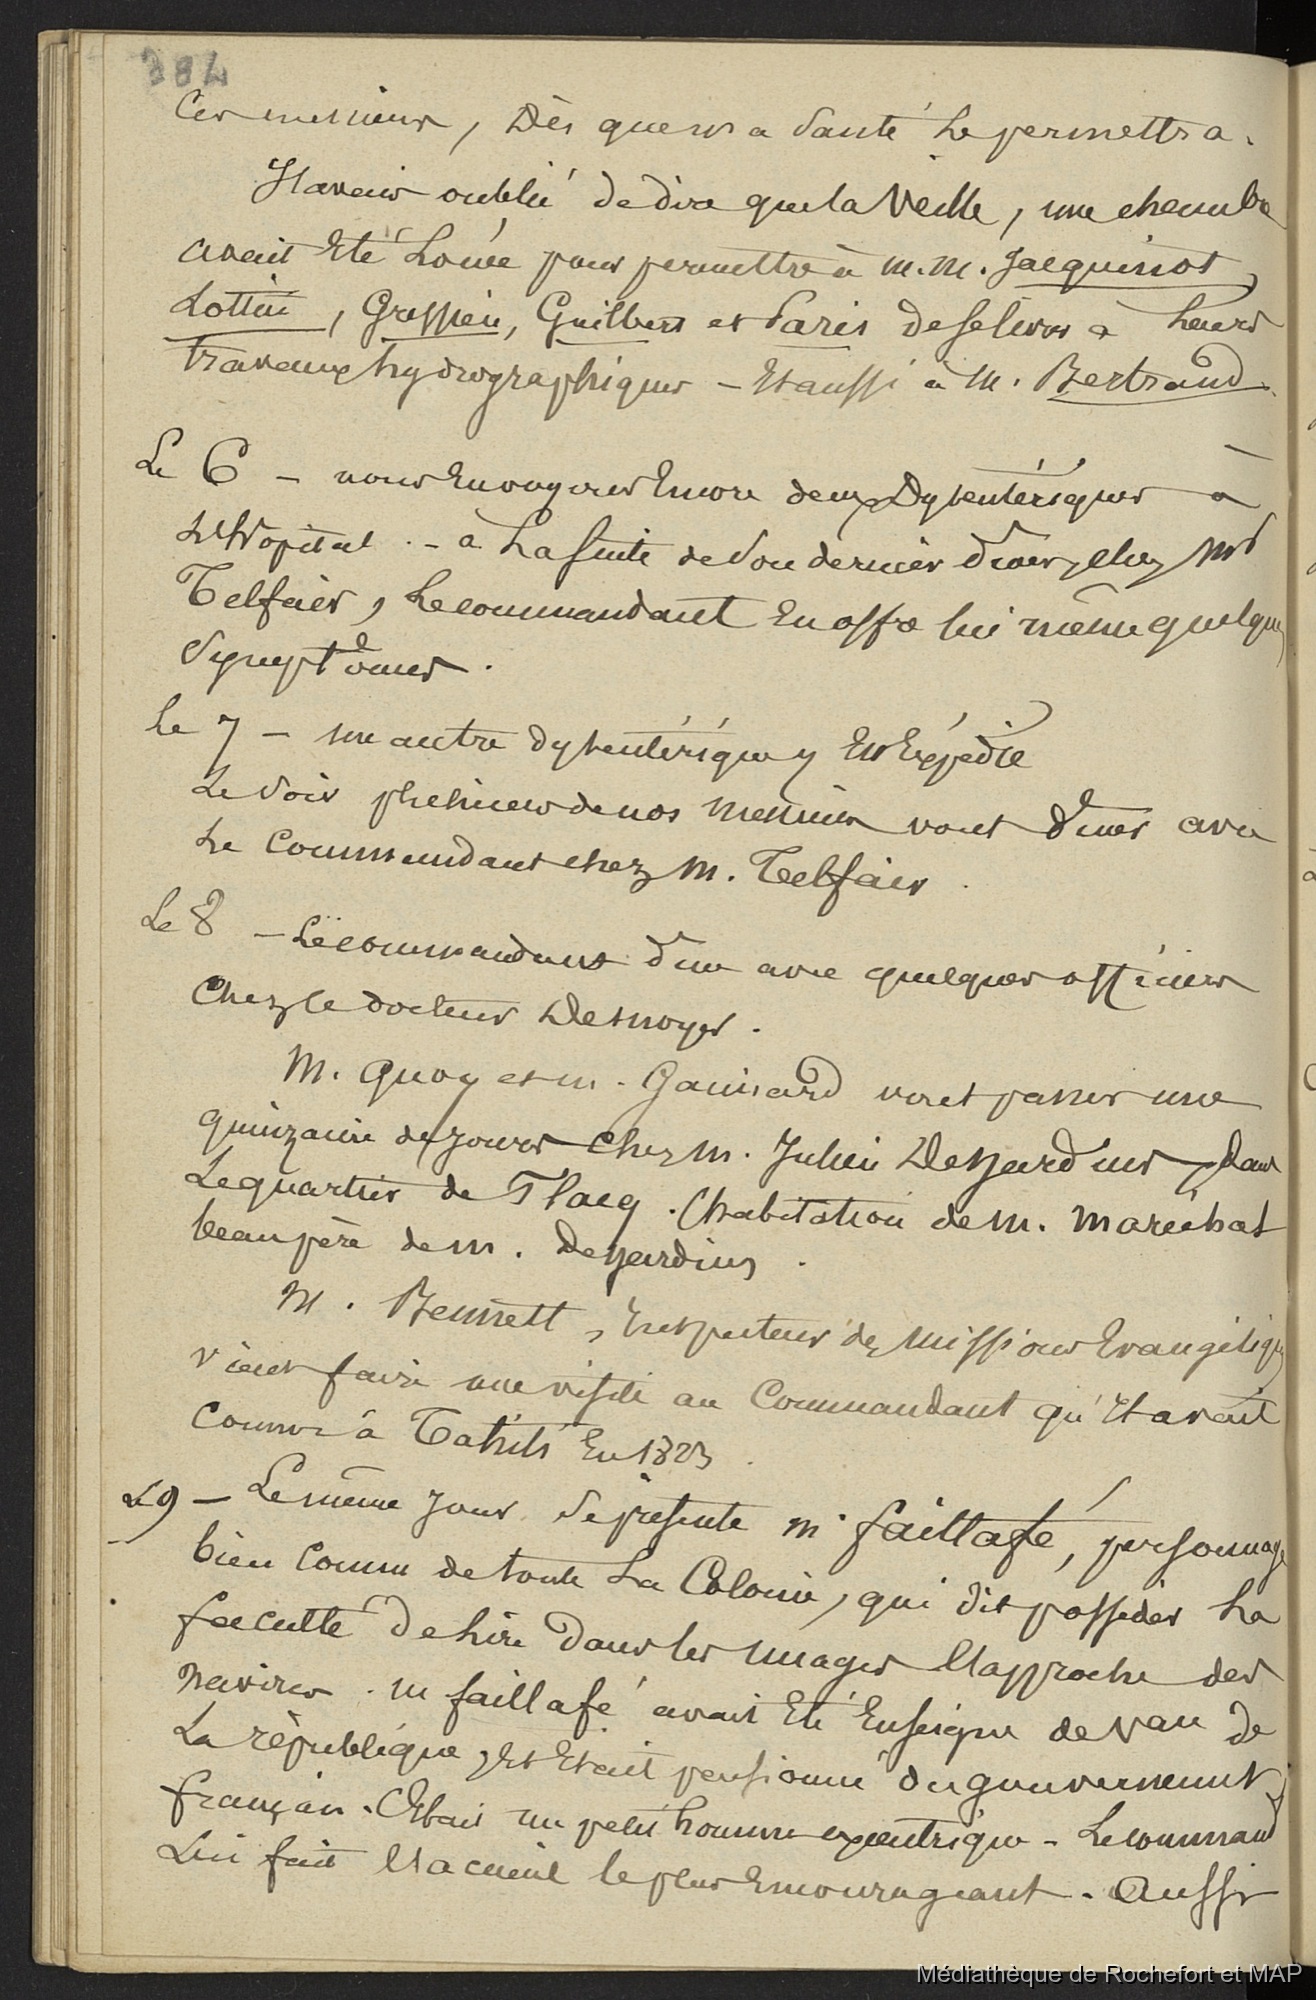 384
Ces messieurs, Dès que sa santé le permettra.
J'avais oublié de dire que la Veille, une chambre
avait été Louée pour permettre à M.M. Jacquinot,
Lottin, Gressien, Guilbert et Paris de se livrer à leurs
travaux hydrographiques – Et aussi à M. Bertrand.
Le 6 – nous Envoyons Encore deux Dysentériques à
L'Hôpital. – à La suite de son dernier dîner chez Mr
Telfair, Le commandant En offre lui même quelques
symptômes.
Le 7 – un autre dysentérique y Est Expédié
Le soir plusieurs de nos Messieurs vont dîner avec
Le Commandant chez M. Telfair.
Le 8 – Le commandant dîne avec quelques officiers
Chez le docteur Desnoyer.
M. Quoy et M. Gaimard vont passer une
quinzaine de jours chez M. Julien Desjardins, dans
Le quartier de Flacq. (habitation de M. Maréchal
beau père de M. Desjardins.
M. Bennett, Inspecteur des Missions Evangéliques
vient faire une visite au Commandant qu'il avait
connu à Tahiti En 1823.
Le 9 – Le même jour se présente M. faillafé, personnage
bien connu de toute La Colonie, qui dit posséder La
faculté De lire dans les nuages L'approche des
navires. M faillafé avait Eté Enseigne de vau de
La république, Et Etait pensionné du gouvernement
français. C'était un petit homme excentrique – Le command
Lui fait L'acueil le plus Encourageant. Aussi
Médiathèque de Rochefort et MAP